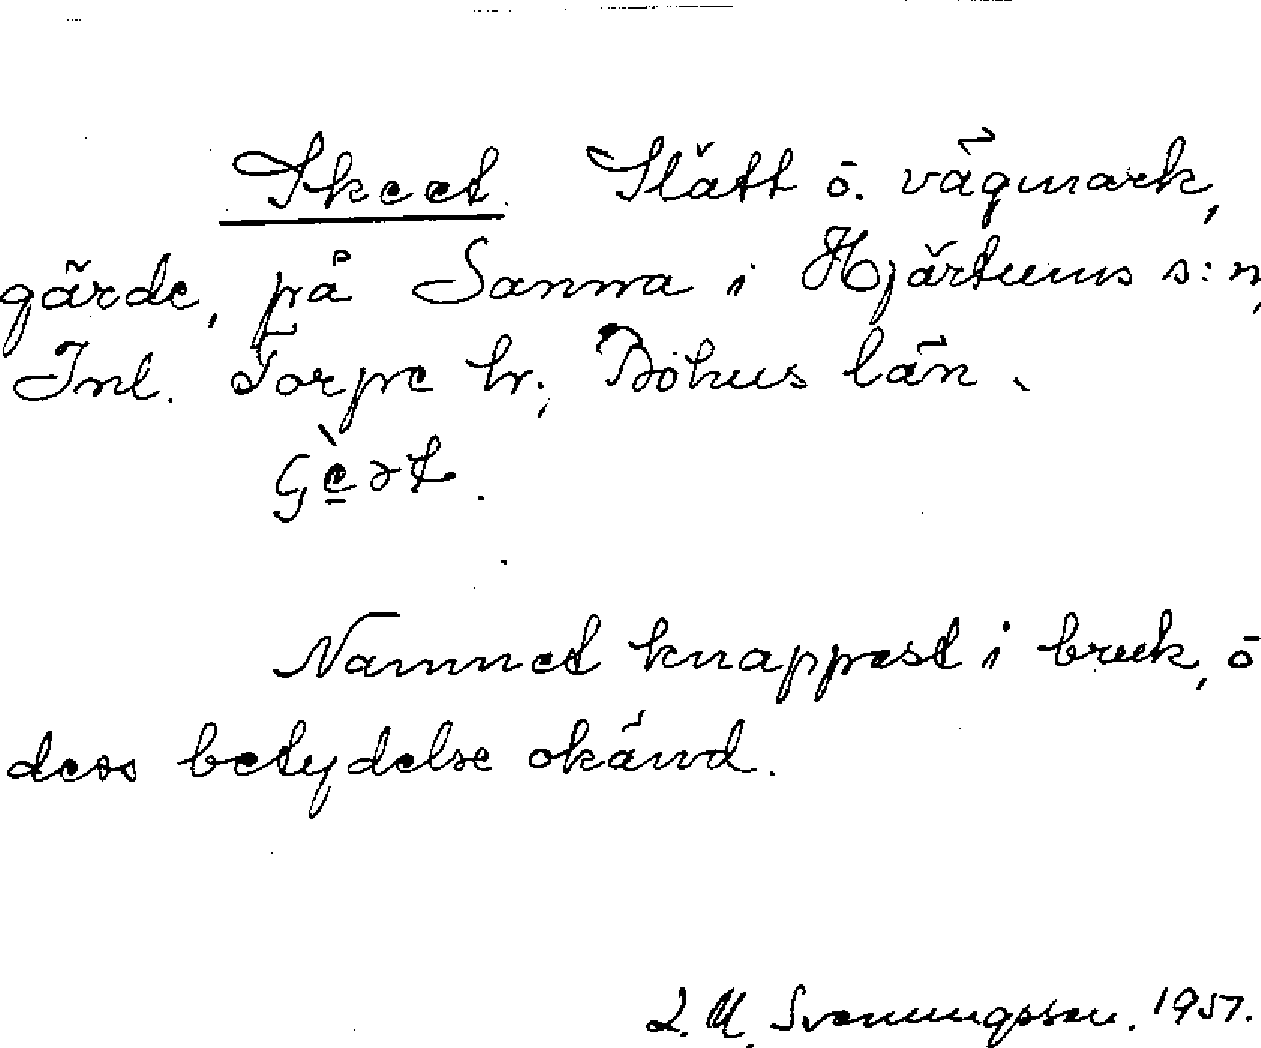 Skeet. Slätt o. vägmark,
gärde, på Sanna i Hjärtums s:n,
Inl. Torpe hr; Bohus län.
Namnet knappast i bruk, o
dess betydelse okänd.
L. M. Svenungsson. 1957.